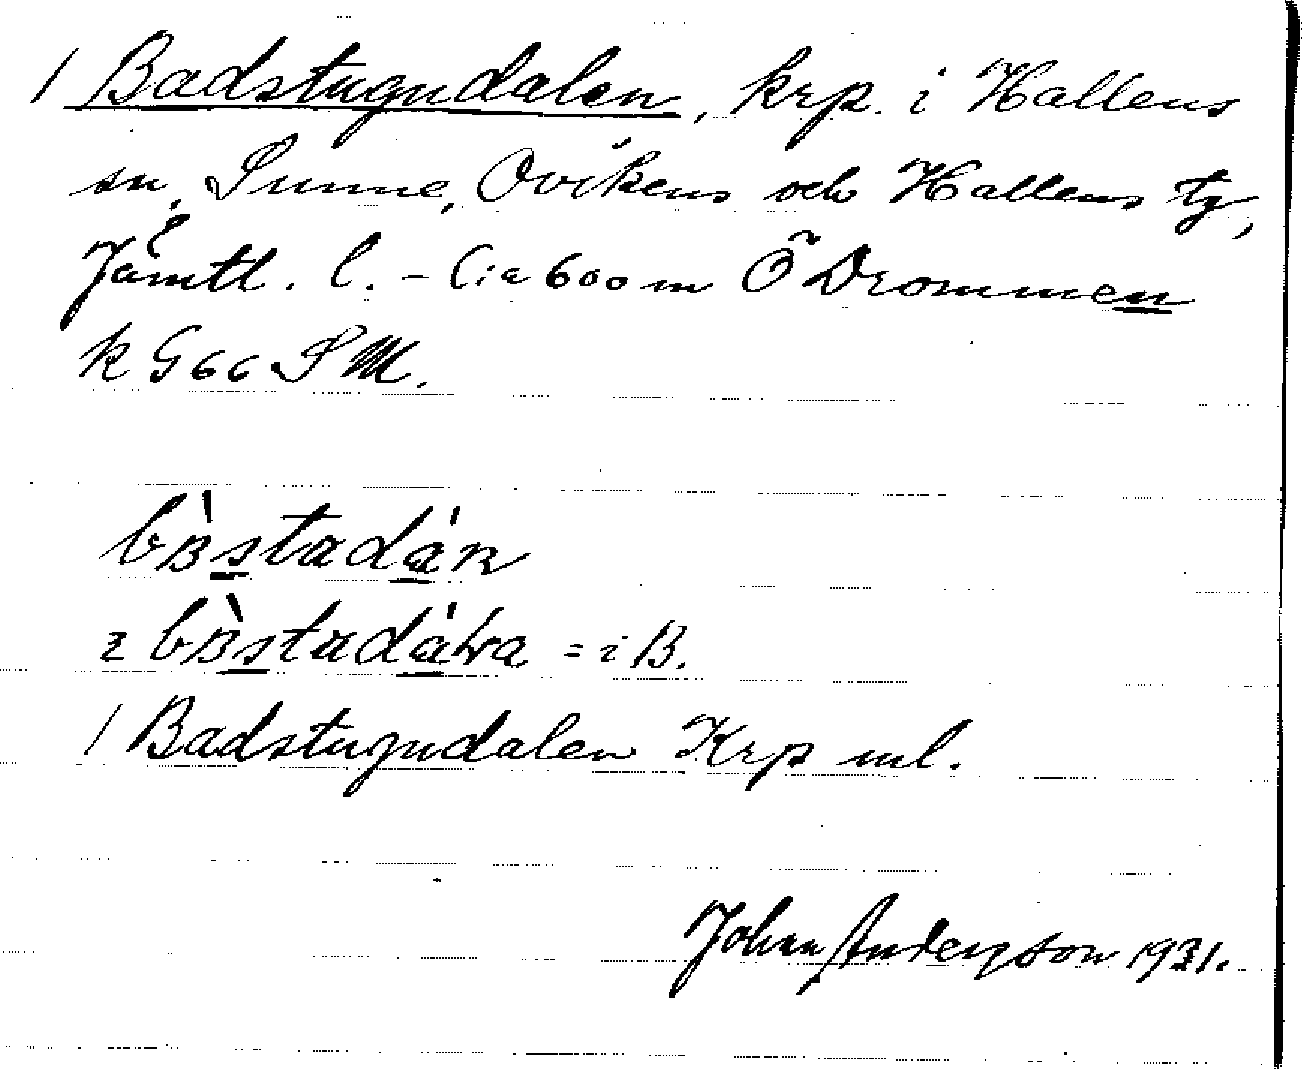 1 Badstugudalen, krp. i Hallens
sn, Sunne, Ovikens och Hallens tg,
Jämtl. l. - Cia 600 m Ö Drommen
k G 66 S M.
bàstadán
z bàstadáva = i B.
1 Badstugudalen Krp ml.
Johan Anderzson 1931.